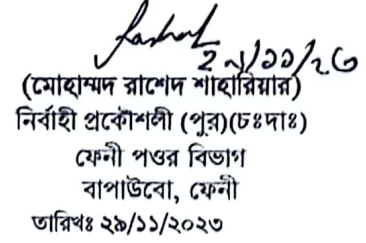 ২৯/১১/২৩
(মোহাম্মদ রাশেদ শাহারিয়ার)
নির্বাহী প্রকৌশলী (পুর)(চঃদাঃ)
ফেনী পওর বিভাগ
বাপাউবো, ফেনী
তারিখঃ ২৯/১১/২০২৩